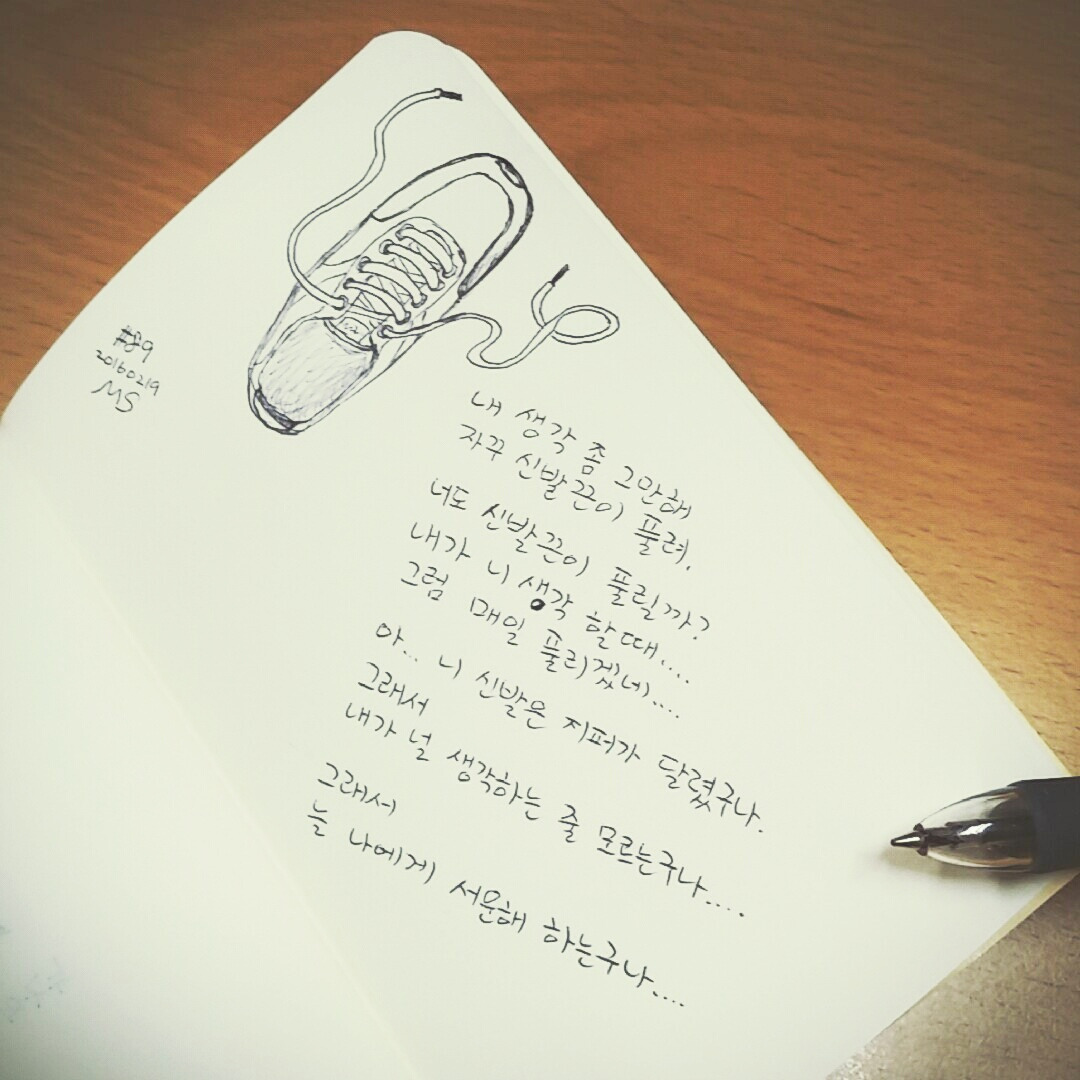 #89
20160219
MS
내 생각 좀 그만해
자꾸 신발끈이 풀려.
너도 신발끈이 풀릴까?
내가 니 생각 할때....
그럼 매일 풀리겠네....
아... 니 신발은 지퍼가 달렸구나.
그래서
내가 널 생각하는 줄 모르는구나....
그래서
늘 나에게 서운해 하는구나....